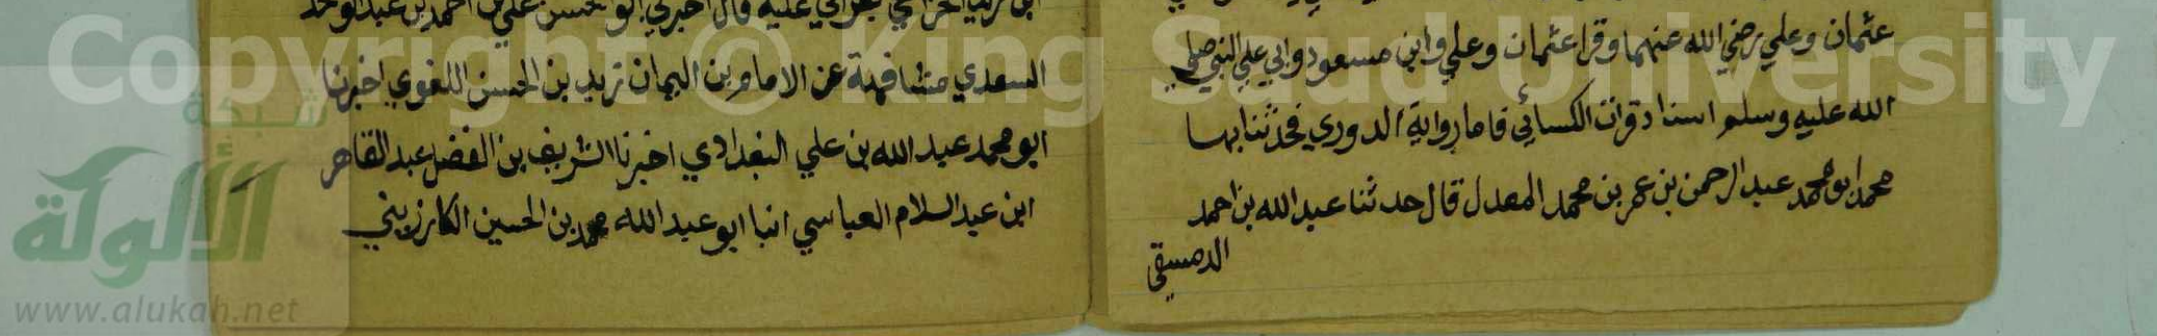 عثمان وعلي رضي الله عنهما وقرا عثمان وعلي وابن مسعود وابي علي النبي صلي
الله عليه وسلم اسناد قرات الكسائي فاما رواية الدوري فحدثنا بها
محمد ابو محمد عبد الرحمن بن عمر بن محمد المعدل قال حدثنا عبد الله بن احمد
الدمسقي
عليه قال اخبرني ابو الحسن علي بن احمد بن عبد الوحد
السعدي مشافهة عن الامام بن اليمان زيد بن الحسن اللغوي اخبرنا
ابو محمد عبد الله بن علي البغدادي اخبرنا الشريف بن الفضل عبد القاهر
ابن عبد السلام العباسي انبا ابو عبد الله محمد بن الحسين الكارزيني
Copyright © King Saud University
شبكة
الألوكة
www.alukah.net